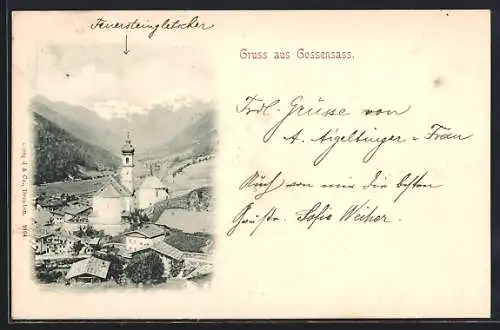 Feuersteingletscher
Gruss aus Gossensass.
Frdl. Grüsse von
A. Aigeltinger u Frau
Auch von mir die besten
Grüße. Sofie Weiher.
& Co., Dresden. 1894